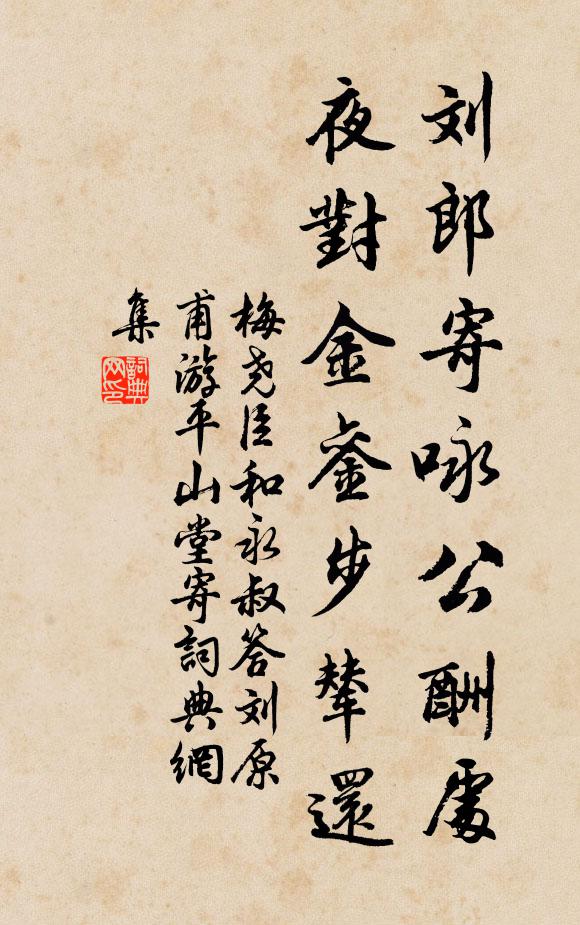 刘郎寄咏公酬處
夜對金銮步辇還
梅尧臣和永叔答刘原
甫游平山堂寄詞典網
集
詞典
网印